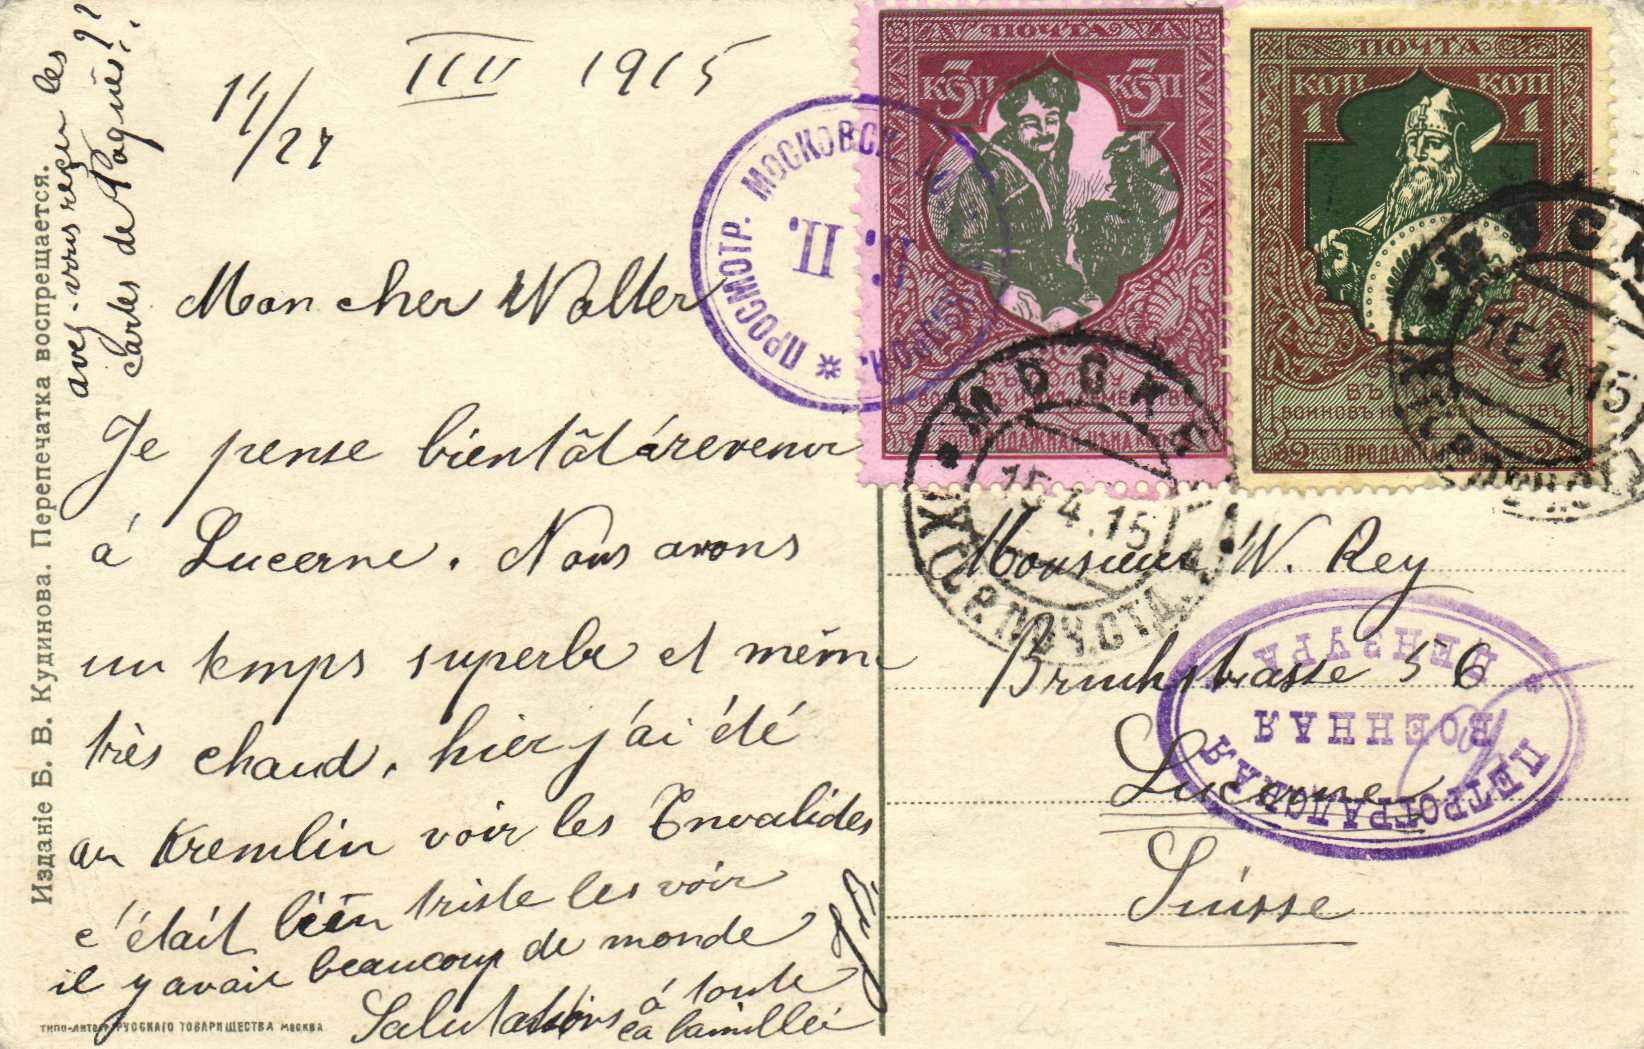 avez-vous reçu les
Cartes de Pâques??
14/27 III 1915
Mon cher Walter
Je pense bientôt á revenir
á Lucerne. Nous avons
un temps superbe et mêm
très chaud, hier j'ai été
au Kremlin voir les Invalides
c'était bien triste les voir
il y avait beaucoup de monde
Salutations á toute
ca famille
Изданіе Б. В. Кудинова. Перепечатка воспрещается.
ТИПО-ЛИТОГР. РУССКАГО ТОВАРИЩЕСТВА МОСКВА
ПОЧТА
3 КОП 3 КОП
ВЪ ПОЛЬЗУ
ПОЧТА
КОП КОП
1 1
ВЪ
ВОИНОВЪ И ИХЪ СЕМЕЙСТВЪ
ПРОСМОТР. МОСКОВСК.
II.
МОСКВА
15.4.15
МОСКВА
15.4.15
Monsieur W. Rey
Bruchstrasse 56
Lucerne
Suisse
ПЕТРОГРАДСКАЯ
ВОЕННАЯ
ЦЕНЗУРА